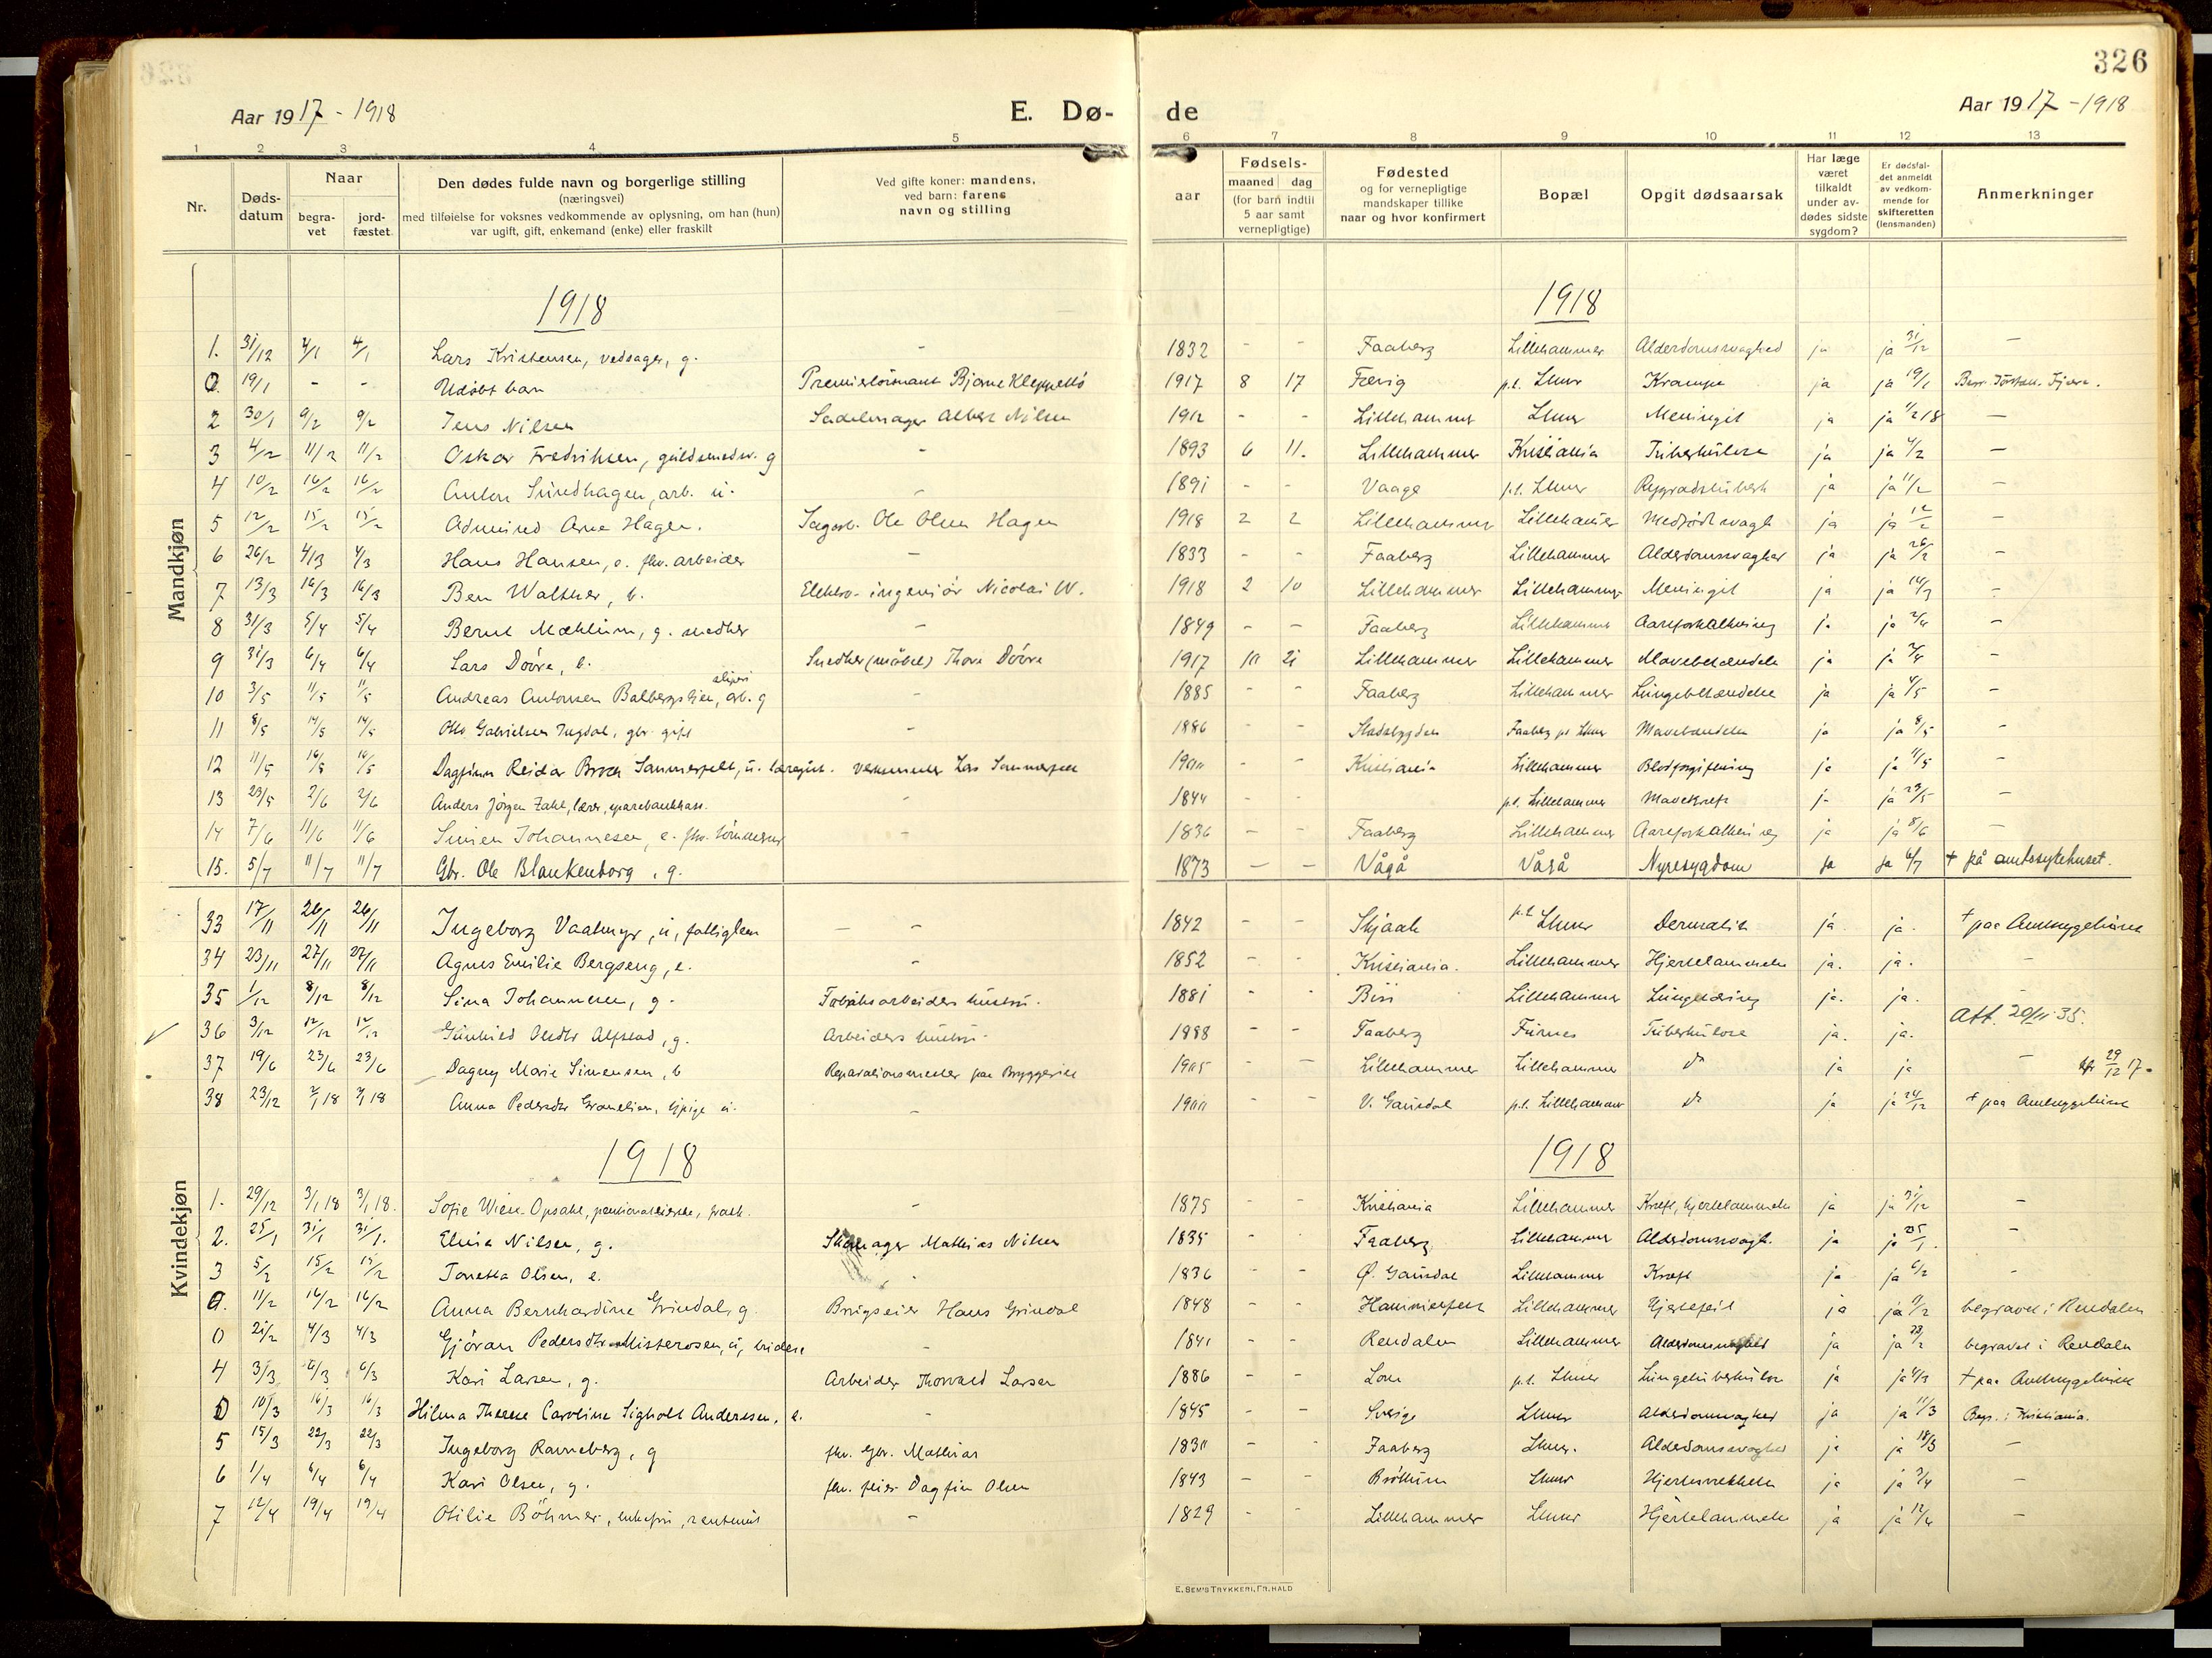 326
Aar 1917 - 1918 E. Dø- de Aar 1917 - 1918
1 2 3 4 5 6 7 8 9 10 11 12 13
Nr. Døds-datum Naar begra-vet jord-fæstet Den dødes fulde navn og borgerlige stilling (næringsvei) med tilføielse for voksnes vedkommende av oplysning, om han (hun) var ugift, gift, enkemand (enke) eller fraskilt Ved gifte koner: mandens, ved barn: farens navn og stilling aar Fødsels- maaned dag (for barn indtil 5 aar samt vernepligtige) Fødested og for vernepligtige mandskaper tillike naar og hvor konfirmert Bopæl Opgit dødsaarsak Har læge været tilkaldt under av-dødes sidste sygdom? Er dødsfal-det anmeldt av vedkom-mende for skifteretten (lensmanden) Anmerkninger
Mandkjøn
1918 1918
1. 31/12 4/1 4/1 Lars Kristensen, vedsager, g. - 1832 - - Faaberg Lillehammer Alderdomssvaghed ja ja 31/12 -
0. 19/1 - - Udøbt barn Premierløitnant Bjarne 1917 8 17 p.t. Lhmr Krampe ja ja 19/1
2 30/1 9/2 9/2 Jens Nilsen Sadelmager Albert Nilsen 1912 - - Lillehammer Lhmr Meningit ja ja 1/2 18 -
3 4/2 11/2 11/2 Oskar Fredriksen, guldsmedsv. g - 1893 6 11. Lillehammer Kristiania Tuberkulose ja ja 4/2 -
4 10/2 16/2 16/2 Anton Sundhagen, arb. u. - 1891 - - Vaage p.t. Lhmr ja ja 11/2 -
5 12/2 15/2 15/2 Arne Hagen. Ole Olsen Hagen 1918 2 2 Lillehammer Lillehammer Medfødt svagh ja ja 12/2 -
6 26/2 4/3 4/3 Hans Hansen, e. fhv. arbeider - 1833 - - Faaberg Lillehammer Alderdomssvaghet ja ja 26/2 -
7 13/3 16/3 16/3 Ben Walther, b. Elektro-ingeniør Nicolai W. 1918 2 10 Lillehammer Lillehammer Meningit ja ja 14/3 -
8 31/3 5/4 5/4 Bernt Mæhlum, g. snedker - 1849 - - Faaberg Lillehammer Aareforkalkning ja ja 2/4 -
9 31/3 6/4 6/4 Lars Dovre, b. Snedker (møbel) Thore Dovre 1917 10 21 Lillehammer Lillehammer ja ja 2/4 -
10 3/5 11/5 11/5 Andreas Antonsen arb. g - 1885 - - Faaberg Lillehammer Lungebetændelse ja ja 4/5 -
11 8/5 14/5 14/5 Otto Gabrielsen gbr. gift - 1886 - - Stadsbygden Faaberg pt Lhmr ja ja 8/5 -
12 11/5 16/5 16/5 Dagfinn Reidar Sammerfelt, u. 1900 - - Kristiania Lillehammer Blodforgiftning ja ja 11/5 -
13 23/5 2/6 2/6 Anders Jørgen Zahl, lærer, - 1844 - - p.t. Lillehammer Mavekræft ja ja 23/5 -
14 7/6 11/6 11/6 Simen Johannesen, e. fhv. tømmerm - 1836 - - Faaberg Lillehammer Aareforkalkning ja ja 8/6 -
15. 5/7 11/7 11/7 Gbr. Ole Blankenborg, g. 1873 - - Vågå Vågå Nyresygdom ja ja 6/7 + på amtssykehuset.
Kvindekjøn
33 17/11 26/11 26/11 Ingeborg Vaalmyr, u, fattiglem - - 1842 - - Skjaak p.t. Lhmr ja ja. + paa Amtssygehuset
34 23/11 27/11 27/11 Agnes Emilie Bergseng, e. - 1852 - - Kristiania. Lillehammer Hjertelammelse ja. ja. -
35 1/12 8/12 8/12 Sina Johannesen, g. Tobaksarbeiders hustru. 1881 - - Biri Lillehammer Lungetæring ja. ja. -
36 3/12 12/12 12/12 Gunhild Olsdtr Alfstad, g. Arbeiders hustru. 1888 - - Faaberg Furnes Tuberkulose ja. ja. Att. 20/11 35.
37 19/6 23/6 23/6 Dagny Marie Simensen, b Reparationsmester paa Bryggeriet 1905 - Lillehammer Lillehammer do ja ja - 29/12 17.
38 23/12 2/1 18 2/1 18 Anna Pedersdtr u. - 1900 - - V. Gausdal p.t. Lillehammer do ja ja 24/12 + paa Amtssygehuset
1918 1918
1. 29/12 3/1 18 3/1 18. Sofie Wien-Opsahl, frask. - 1875 - - Kristiania Lillehammer Kræft, hjertelammelse ja ja 31/12 -
2. 25/1 31/1 31/1. Elisia Nilsen, g. Skomager Mathias Nilsen 1835 - - Faaberg Lillehammer Alderdomssvagh. ja ja 25/1. -
3 5/2 15/2 15/2 Tonetta Olsen, e. - 1836 - - Ø. Gausdal Lillehammer Kræft ja ja 6/2 -
0. 11/2 16/2 16/2 Anna Bernhardine Grindal, g. Brugseier Hans Grindal 1848 - - Hammerfest Lillehammer Hjertefeil ja ja 11/2 begravet i Rendalen
0 21/2 4/3 4/3 Gjøran Pedersdtr Misterosen, u, - 1841 - - Rendalen Lillehammer Alderdomssvaghed ja ja 23/2 begravet i Rendalen
4 3/3 6/3 6/3 Kari Larsen, g. Arbeider Thorvald Larsen 1886 - - Lom p.t. Lhmr Lungetuberkulose ja ja 4/3 + paa Amtssygehuset
0 10/3 16/3 16/3 Hilma Therese Caroline Sigholt Andersen, e. - 1845 - - Sverige Lhmr Alderdomssvaghed ja ja 11/3 Begr. i Kristiania.
5 15/3 22/3 22/3 Ingeborg Ranneberg, g fhv. Gbr. Mathias 1830 - - Faaberg Lhmr. Alderdomssvaghed ja ja 18/3 -
6 1/4 6/4 6/4 Kari Olsen, g. fhv. feier Dagfin Olsen 1843 - - Brøttum Lhmr ja ja 3/4 -
7 12/4 19/4 19/4 Otilie Böhmer, enkefru, rentenist - 1829 - - Lillehammer Lhmr Hjertelammelse ja ja 12/4 -
E. SEM'S TRYKKERI, FR.HALD